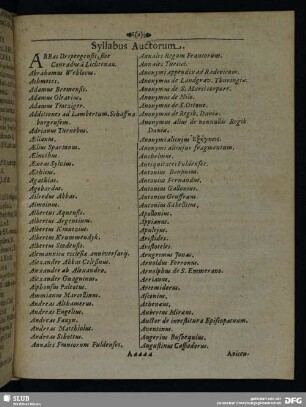 Syllabus Auctorum.
ABBas Urspergensis, sive
Conradus à Liechtenau.
Abrahamus Wehlocus.
Achmetes.
Adamus Bremensis.
Adamus Olearius.
Adamus Tratziger.
Additiones ad Lambertum Schafna
burgensem.
Adrianus Turnebus.
Ælianus.
Ælius Spartanus.
Ælnothus.
Æneas Sylvius.
Æthicus.
Agathias.
Agobardus.
Ailredus Abbas.
Aimoinus.
Albertus Aquensis.
Albertus Argentinus.
Albertus Krantzius.
Albertus Krummendyk.
Albertus Stadensis.
Alexander Abbas Celesinus.
Alexander ab Alexandro.
Alexander Guagninus.
Alphonsus Paleotus.
Ammianus Marcellinus.
Andreas Althamerus.
Andreas Engelius.
Andreas Favyn.
Andreas Matthiolus.
Andreas Schottus.
Annales Francorum Fuldenses.
Annales Regum Francorum.
Annales Turcici.
Anonymi appendix ad Radevicum.
Anonymus de Landgrav. Thuringiæ.
Anonymus de Nilo.
Anonymus de S. Ottone.
Anonymus de Regib. Daniæ.
Anonymus alius de nonnullis Regib.
Daniæ.
Anonymi fragmentum.
Antiquitates Fuldenses.
Antonius Bonfinius.
Antonius Fernandius.
Antonius Gallonius.
Antonius Sabellicus.
Apollonius.
Appianus.
Apulejus.
Aristides.
Aristoteles.
Arngrimus Jonas.
Arnoldus Ferronus.
Arnolphus de S. Emmerano.
Arrianus.
Artemidorus.
Asconius.
Athenæus.
Aubertus Miræus.
Auctor de investitura Episcoporum.
Aventinus.
Augerius Busbequius.
Augustinus Cassiodorus.
Aaaaa
Avicen-
SLUB
DFG